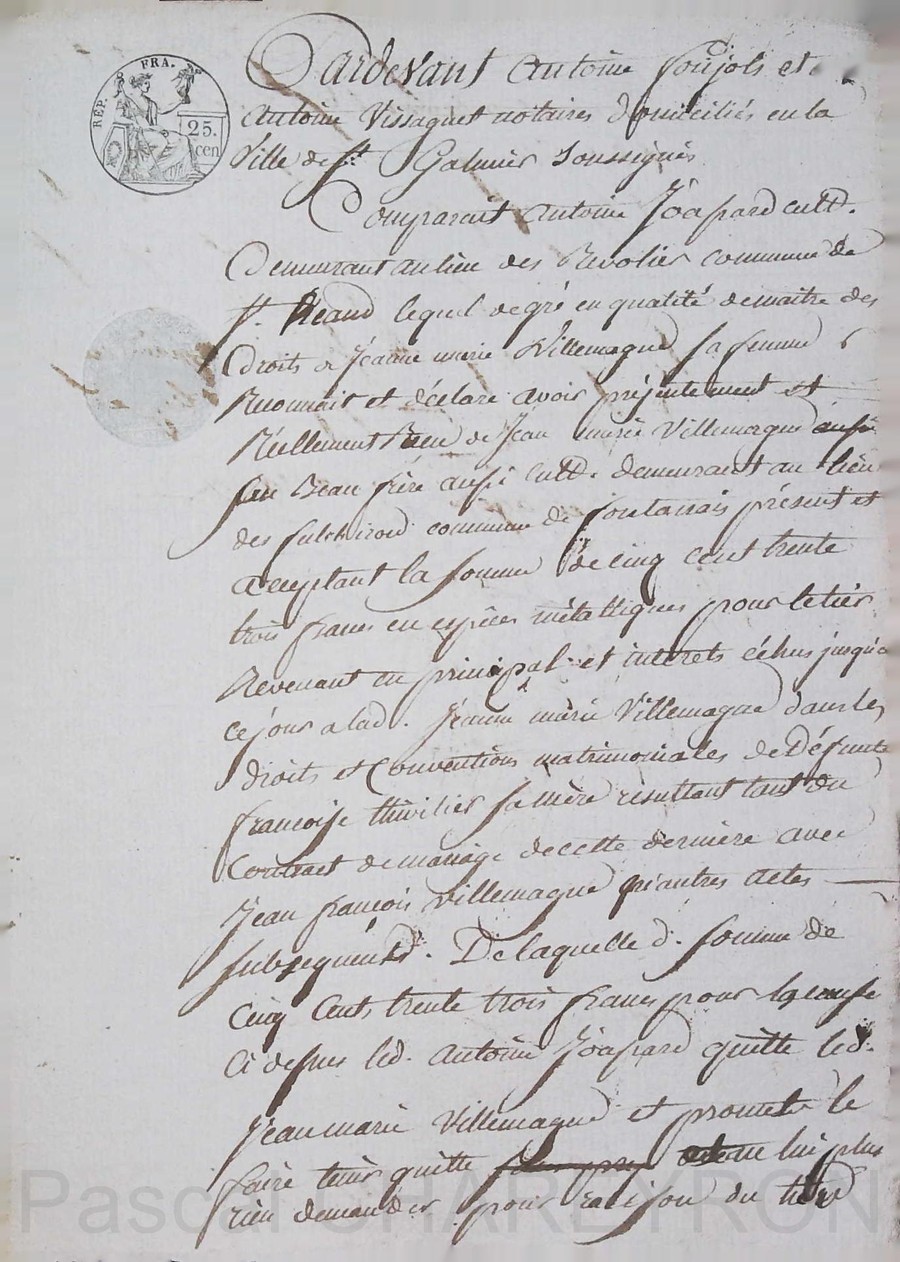 RÉP. FRA.
25.
cen
Pardevant Antoine Poujols et
Antoine Vissaguet notaires domiciliés en la
Ville de St Galmier soussignés
Comparait Antoine Joapard cultr.
Demeurant au lieu des Revolier commune de
St. Heand lequel de gré en qualité de maitre des
droits de Jeanne marie Villemagne sa femme
Reconnait et déclare avoir présentement et
Réellement Reçu de Jean marie Villemagne
son Beau frère aussi cultr. demeurant au lieu
des fulchirond commune de fontanais présent et
acceptant la somme de cinq cent trente
trois francs en espèces métalliques pour le tier
Revenant en principal et interets échus jusqu'a
ce jour a lad. Jeanne marie Villemagne dans les
droits et Conventions matrimoniales de Défunte
francoise thivilier sa mère résultant tant du
Contract de mariage de cette dernière avec
Jean francois Villemagne qu'autres actes
subséquents. De laquelle d. somme de
Cinq Cents trente trois francs pour la cause
Ci dessus led. Antoine Joapard quitte led.
Jean marie Villemagne et promet le
faire tenir quitte lui plus
rien demander pour raison du tier
Pascal CHAREYRON